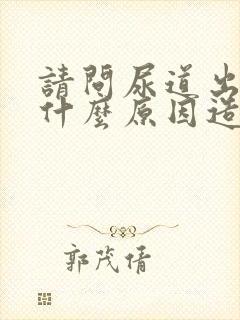 請問尿道出
什麼原因造
郭茂倩